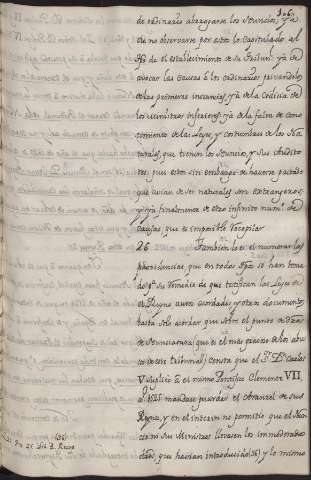 106
de ordinarios abrogarse los Nuncios, ya
de no observarse por estos lo capitulado al
de el establecimiento de su Tribun.l ya de
avocar las Causas a los ordinarios privandoles
de las primeras instancias, ya de la Codicia de
los Ministros inferiores, ya de la falta de cono
cimiento de las Leyes, y costumbres de los Na
turales, que tienen los Nuncios, y sus Audito
res, pues estos sin embargo de haverse pactado
que avian de ser naturales son extrangeros,
y ya finalmente de otro infinito num.o de
causas que es imposible recopilar
26 Tambien lo es el numerar las
providencias que en todos tpos se han toma
do p.a su remedio de que testifican las Leyes de
el Reyno autos acordados, y otros documentos
basta solo acordar que sobre el punto de
de Nunciatura (que es el mas preciso de los abu
sos de este tribunal) consta que el S.r D.n Carlos
V suplicó a el mismo Pontifice Clemente VII,
al 1525 mandase guardar el Arancel de sus
Reynos, y en el interin no permitió que el Nun
cio ni sus Ministros llevasen los inmoderados
que havian introducido (36) y lo mismo
(36)